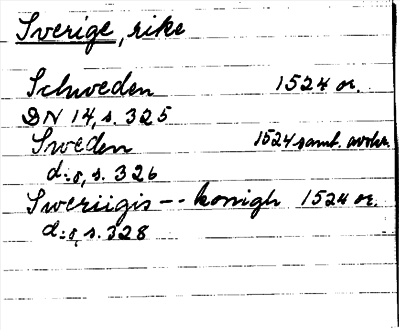 Sverige, rike
Schweden 1524 or.
DN 14, s. 325
Sweden 1524 samt. avskr.
d:o, s. 326
Sweriigis -- konigh 1524 or.
d:o, s. 328